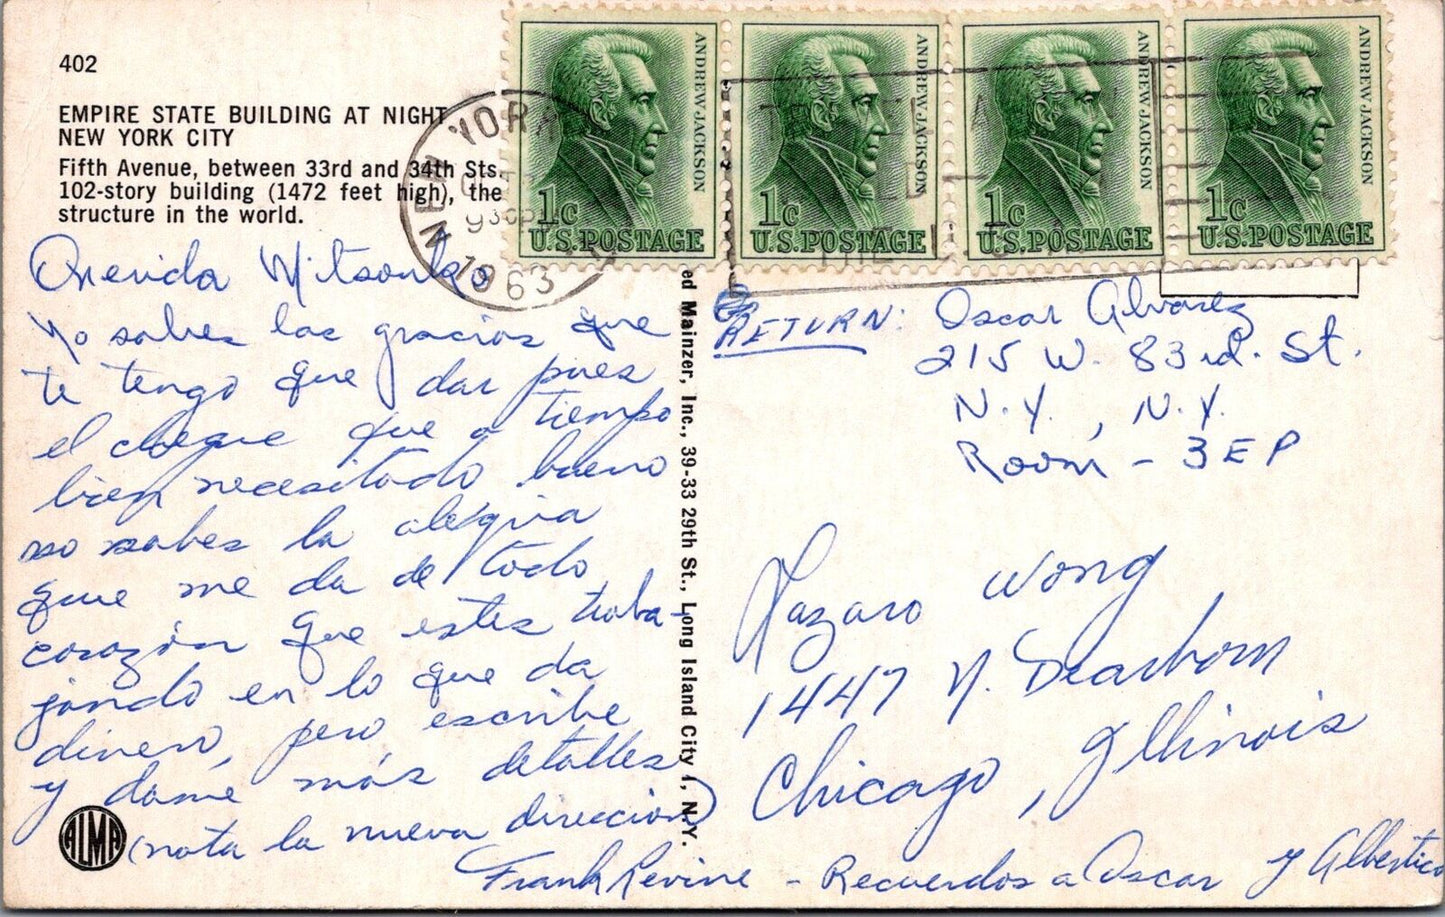 402
EMPIRE STATE BUILDING AT NIGHT
NEW YORK CITY
Fifth Avenue, between 33rd and 34th Sts.
102-story building (1472 feet high), the
structure in the world.
Querida Mitsouko
Yo sabes las gracias que
te tengo que dar pues
el cheque fue a tiempo
bien necesitado bueno
no sabes la alegria
que me da de todo
corazón que estes traba-
jando en lo que da
dinero, pero escribe
y dame más detalles
(nota la nueva direccion)
Frank Levine - Recuerdos a Oscar y Albertico
ALMA
ed Mainzer, Inc., 39-33 29th St., Long Island City 1, N.Y.
NEW YORK
1963
ANDREW JACKSON
1c
U.S. POSTAGE
ANDREW JACKSON
1c
U.S. POSTAGE
ANDREW JACKSON
1c
U.S. POSTAGE
ANDREW JACKSON
1c
U.S. POSTAGE
RETURN: Oscar Alvarez
215 W. 83rd. St.
N.Y., N.Y.
Room - 3EP
Lazaro Wong
1447 N. Dearborn
Chicago, Illinois